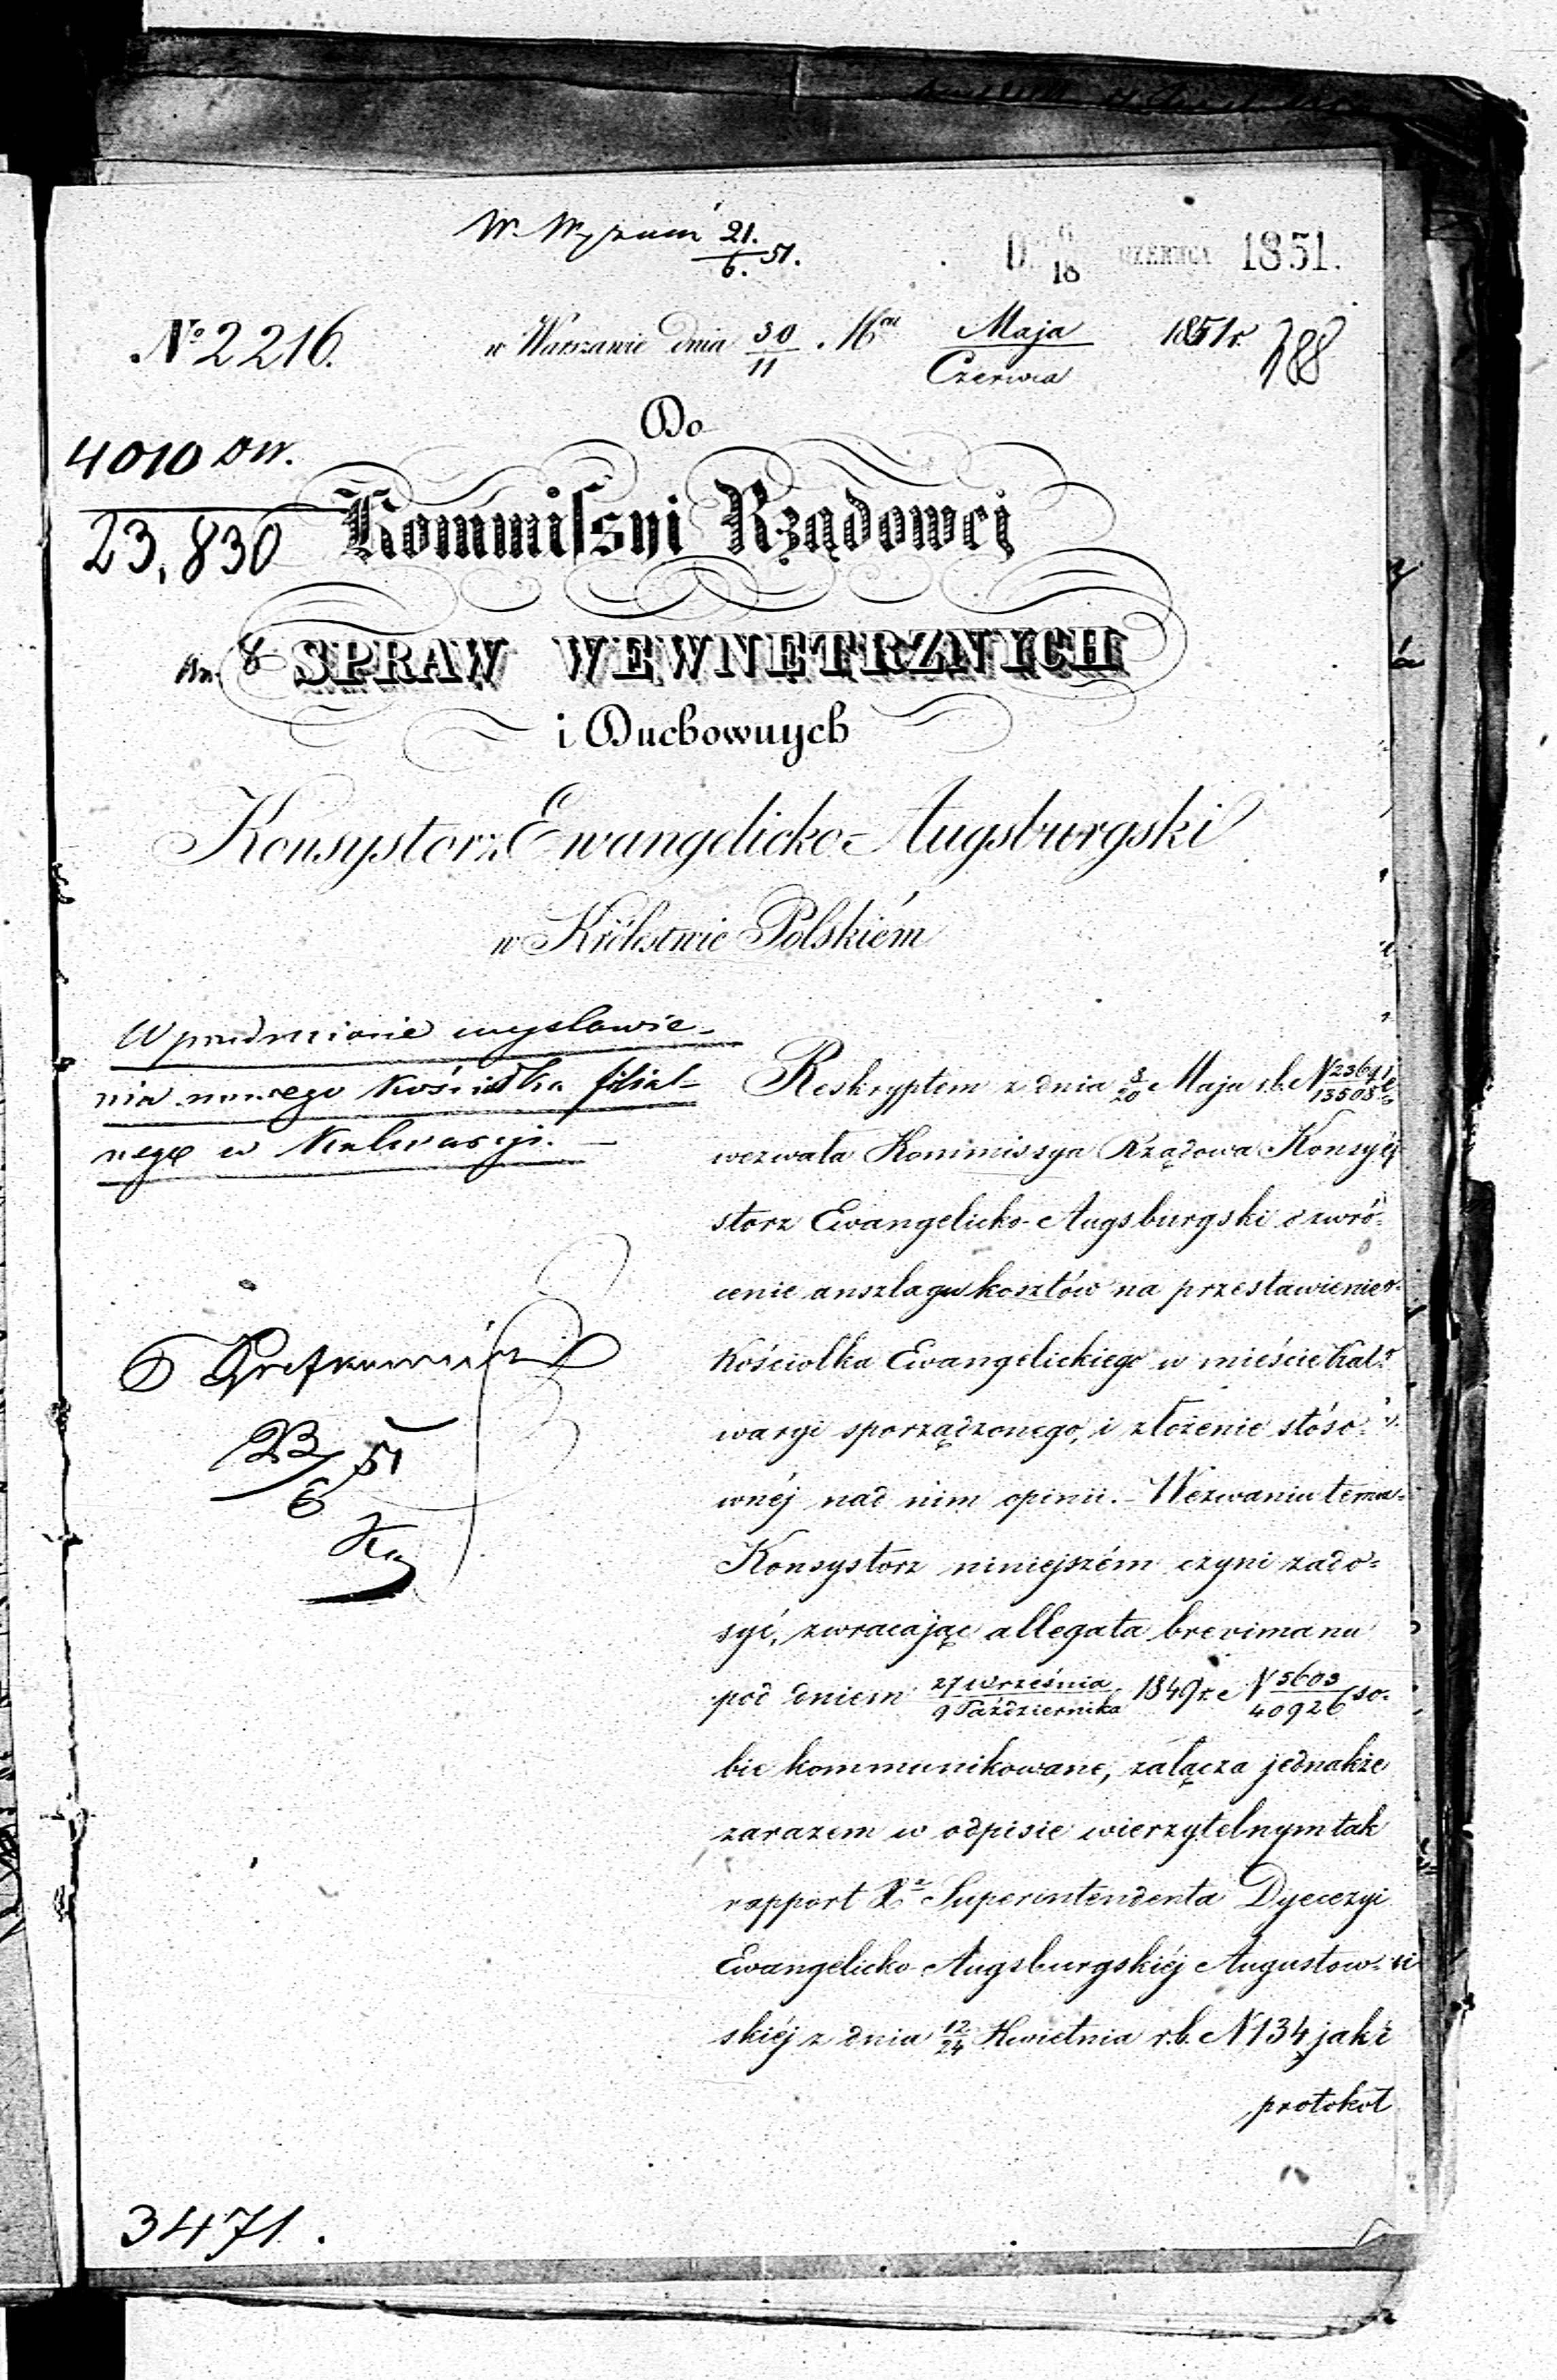 W. 21./6. 51.
D. 6/18 CZERWCA 1851.
№ 2216. w Warszawie dnia 30/11 Maja/Czerwca 1851 r. 388
Do
4010 DW.
23,830 Kommissyi Rządowej
8 SPRAW WEWNĘTRZNYCH
i Duchownych
Konsystorz Ewangelicko-Augsburgski
w Królestwie Polskiém
W przedmiocie wystawie-
nia nowego Kościołka filial-
nego w Kalwaryi. —
23/6 51
Reskryptem z dnia 8/20 Maja r.b. N 23641/13508
wezwała Kommissya Rządowa Konsy-
storz Ewangelicko-Augsburgski o zwró-
cenie anszlagu kosztów na przestawienie
Kościołka Ewangelickiego w mieście Kal-
waryi sporządzonego, i złożenie stóso-
wnéj nad nim opinii. – Wezwaniu temu
Konsystorz niniejszém czyni zado-
syć, zwracając allegata brevi manu
pod dniem 27 Września/9 Października 1849 r. N 5603/40926 so-
bie kommunikowane, załącza jednakże
zarazem w odpisie wierzytelnym tak
rapport Xa Superintendenta Dyecezyi
Ewangelicko-Augsburgskiéj Augustow-
skiéj z dnia 12/24 Kwietnia r.b. N 134 jak i
protokół
3471.